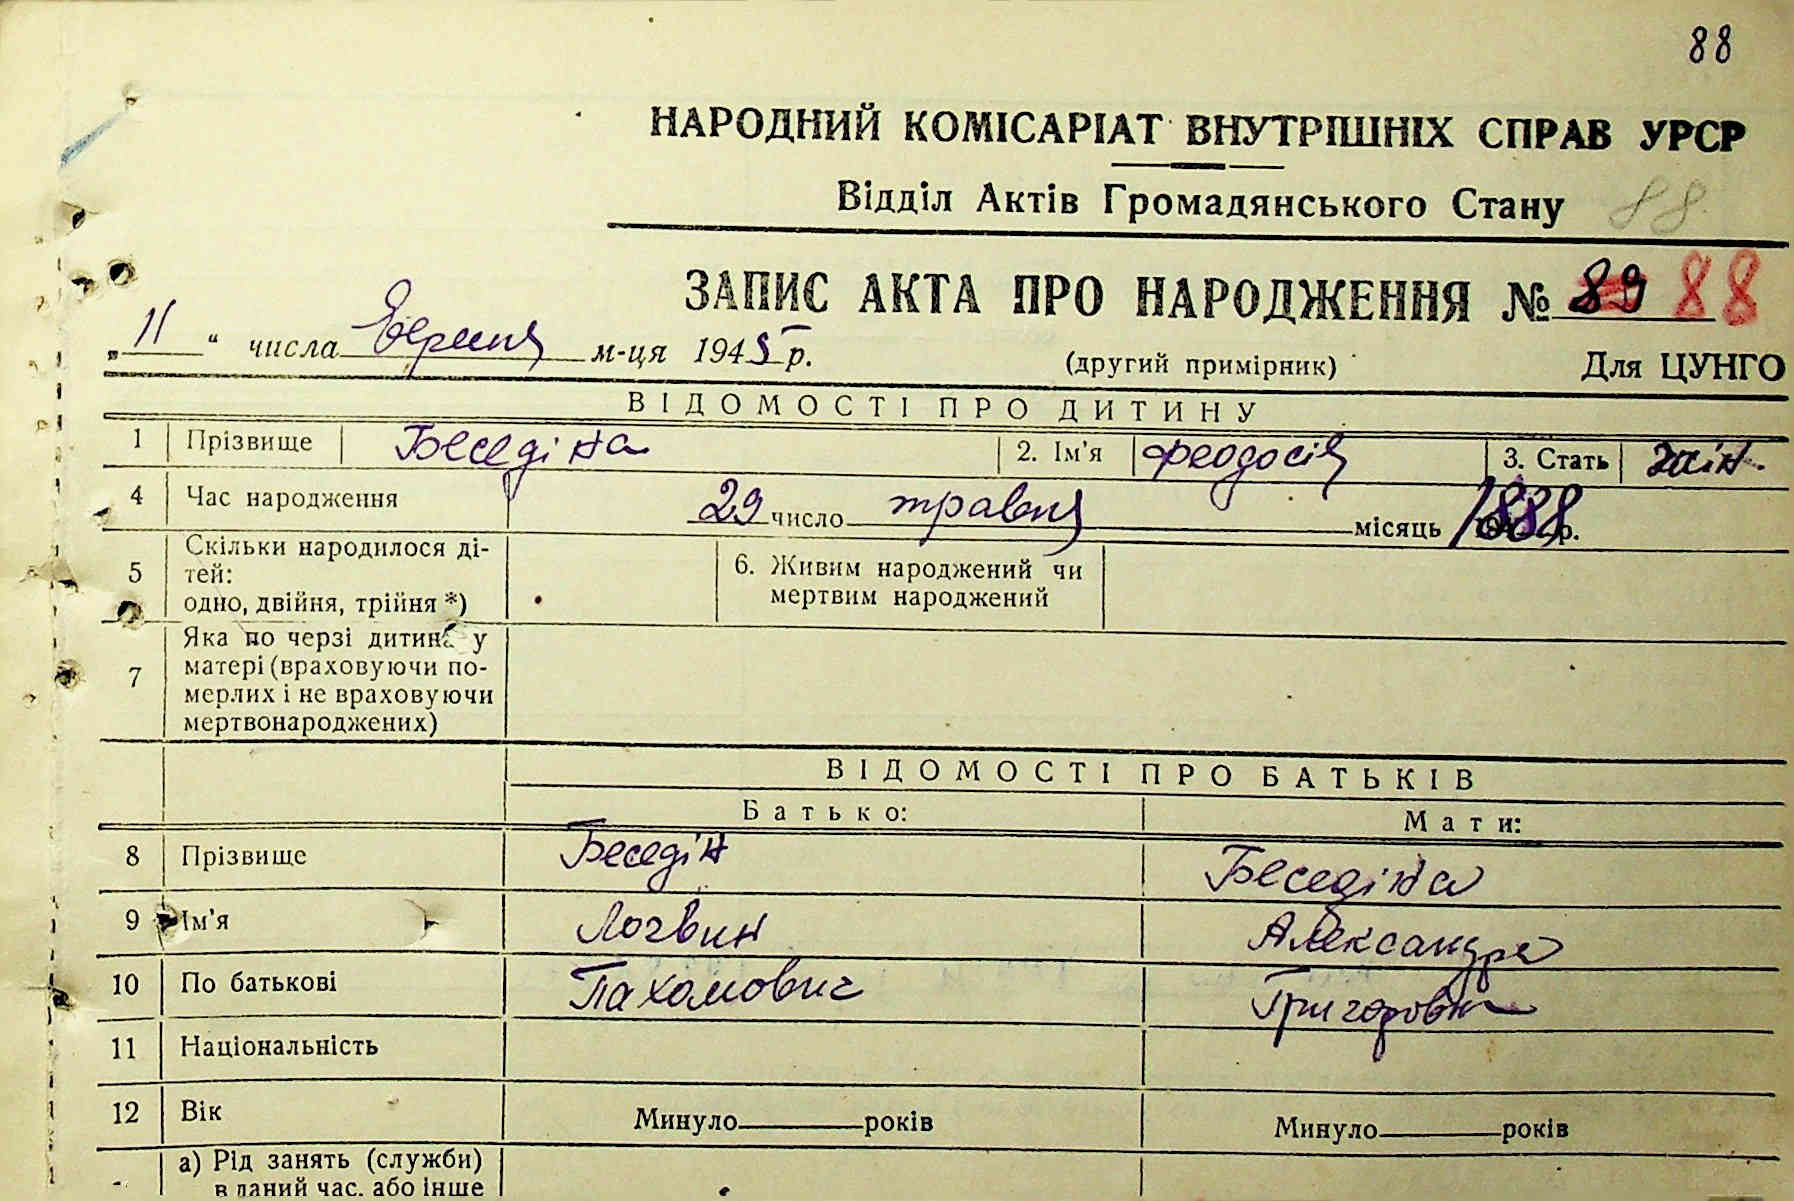 88
НАРОДНИЙ КОМІСАРІАТ ВНУТРІШНІХ СПРАВ УРСР
Відділ Актів Громадянського Стану 88
ЗАПИС АКТА ПРО НАРОДЖЕННЯ № 89 88
„11“ числа Вересня м-ця 1945 р. (другий примірник) Для ЦУНГО
ВІДОМОСТІ ПРО ДИТИНУ
1 Прізвище Беседіна 2. Ім'я Феодосія 3. Стать жін.
4 Час народження 29 число травня місяць 1888 р.
5 Скільки народилося ді-
тей:
одно, двійня, трійня *)
6. Живим народжений чи
мертвим народжений
7 Яка по черзі дитина у
матері (враховуючи по-
мерлих і не враховуючи
мертвонароджених)
ВІДОМОСТІ ПРО БАТЬКІВ
Батько: Мати:
8 Прізвище Беседін Беседіна
9 Ім'я Логвин Александра
10 По батькові Пахомович Григоровна
11 Національність
12 Вік Минуло років Минуло років
а) Рід занять (служби)
в даний час, або інше